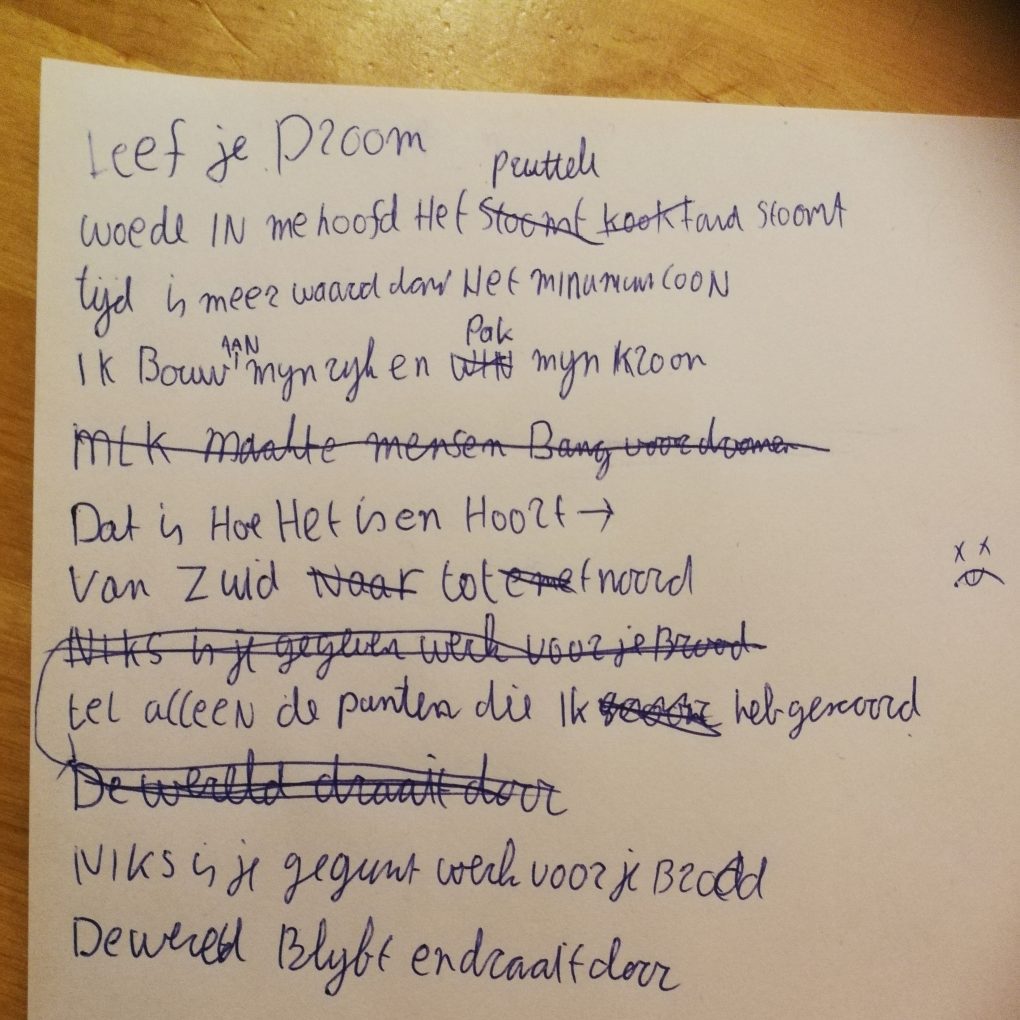 Leef je Droom
pruttelt
woede IN me hoofd Het Stoomt kookt and stoomt
tijd is meer waard dan Het minumum LOON
AAN
Pak
Ik Bouw mijn rijk en WIN mijn kroon
MLK maakte mensen Bang voor dromen
Dat is Hoe Het is en Hoort →
Van Zuid Naar tot noord
NIKS is je gegeven werk voor je Brood
tel alleen de punten die Ik heb gescoord
De wereld draait door
NIKS is je gegunt werk voor je Brood
De wereld Blijft en draait door